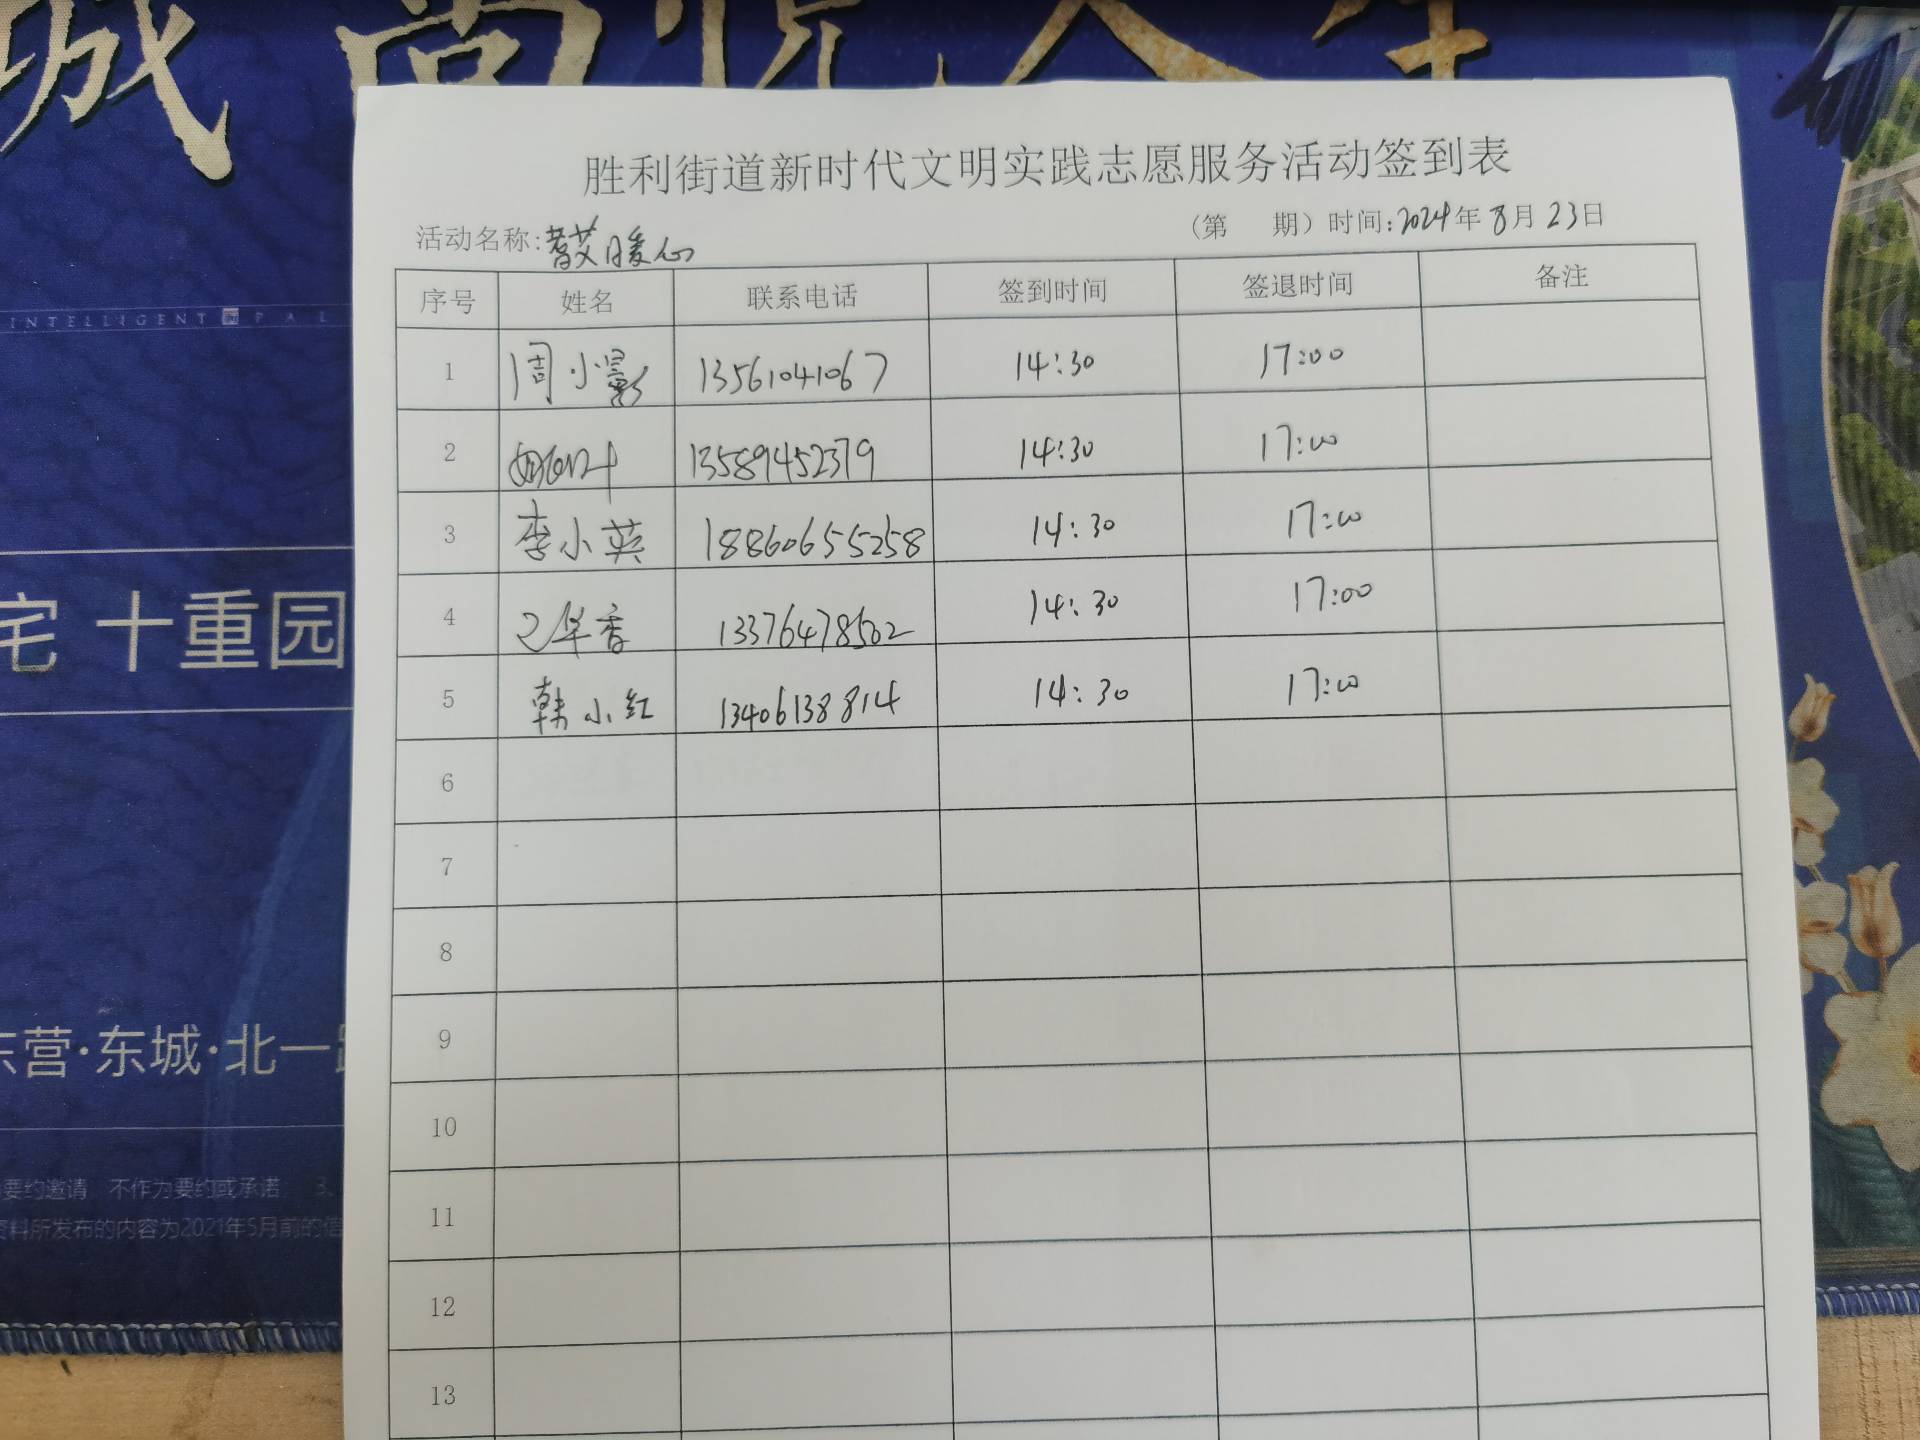 城 尚悦人生
胜利街道新时代文明实践志愿服务活动签到表
活动名称: 暖心 (第 期) 时间: 2024年8月23日
序号 姓名 联系电话 签到时间 签退时间 备注
INTELLIGENT PAL
1 周小影 13561041067 14:30 17:00
2 13589452379 14:30 17:00
3 李小英 18860655258 14:30 17:00
宅 十重园
4 华香 13376478502 14:30 17:00
5 韩小红 13406138814 14:30 17:00
6
7
8
9
东营·东城·北一路
10
要约邀请 不作为要约或承诺 3、
11
资料所发布的内容为2021年5月前的信
12
13